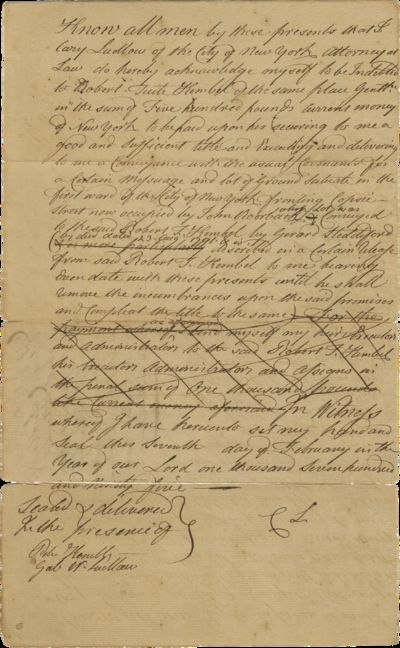 Know all men by these presents that I
Cary Ludlow of the City of New York Attorney at
Law do hereby acknowledge myself to be Indebted
to Robert Tuite Kembel of the same place Gentn
in the sum of Five hundred pounds current money
of New York to be paid upon his securing to me a
good and sufficient title and Executing and delivering
to me a Conveyance with the usual Covenants for
a Certain Messuage and lot of Ground situate in the
first ward of the City of New York fronting
street now occupied by John Conveyed
to the said Robert T. Kembel by Gerard
by deed dated
described in a Certain
from said Robert T. Kembel to me bearing
even date with these presents until he shall
remove the incumbrances upon the said premises
and Compleat the title to the same For the
payment myself my heirs Executors
and Administrators to the said Robert T. Kembel
his Executors Administrators and Assigns in
the penal sum of One thousand pounds
like Current money aforesaid In Witness
whereof I have hereunto set my hand and
seal this Seventh day of February in the
Year of our Lord one thousand seven hundred
and Ninety five
Sealed & delivered
In the presence of
C L
Gab W. Ludlow